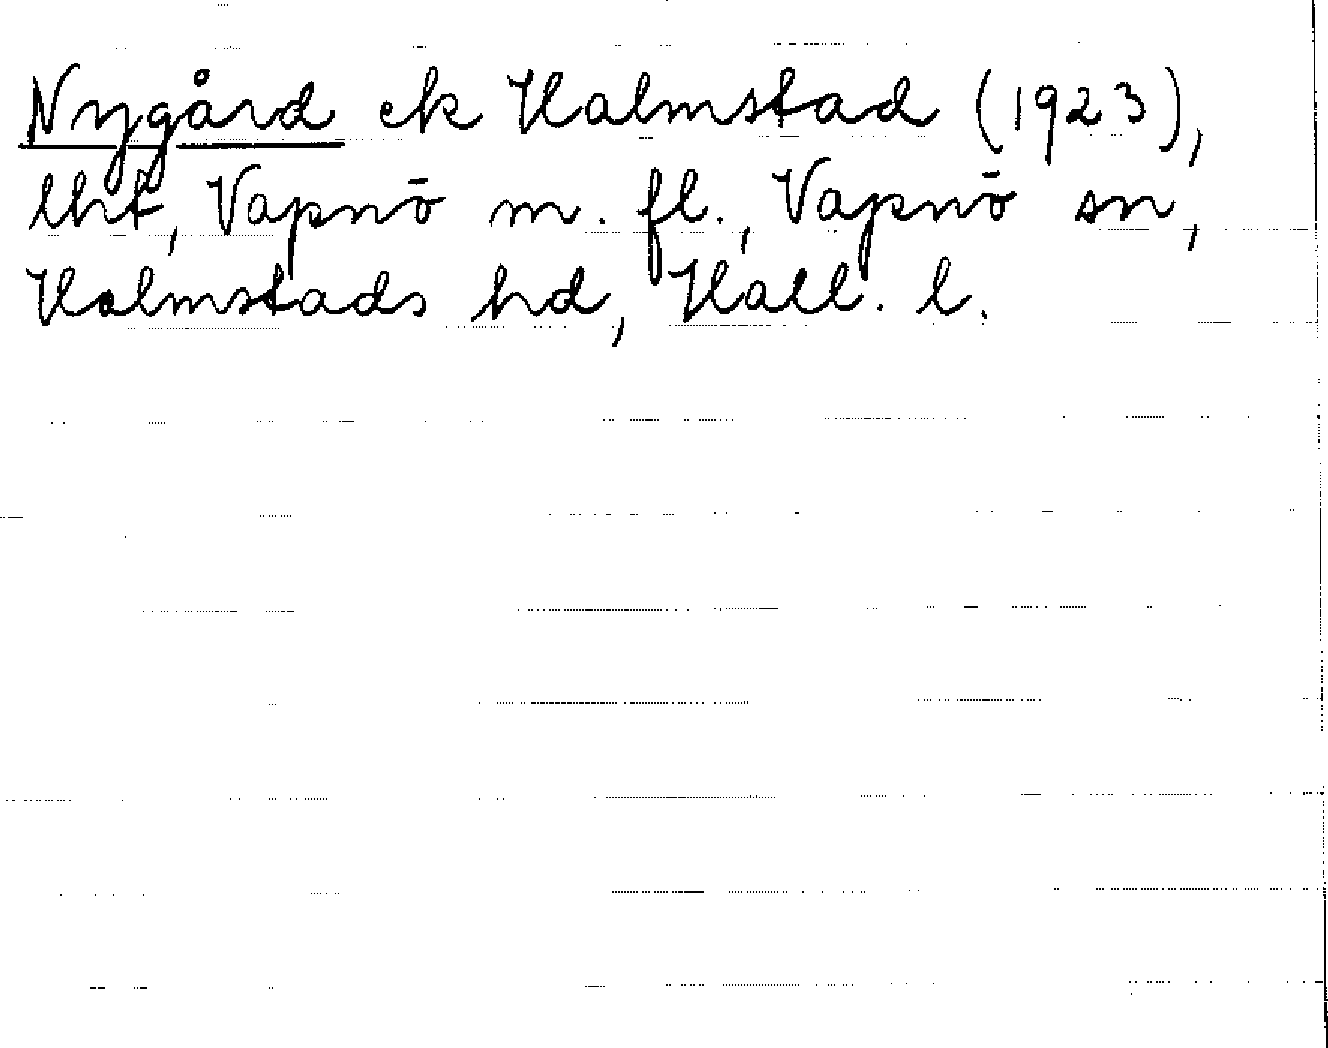 Nygård ek Halmstad (1923),
lht, Vapnö m. fl., Vapnö sn,
Halmstads hd, Hall. l.